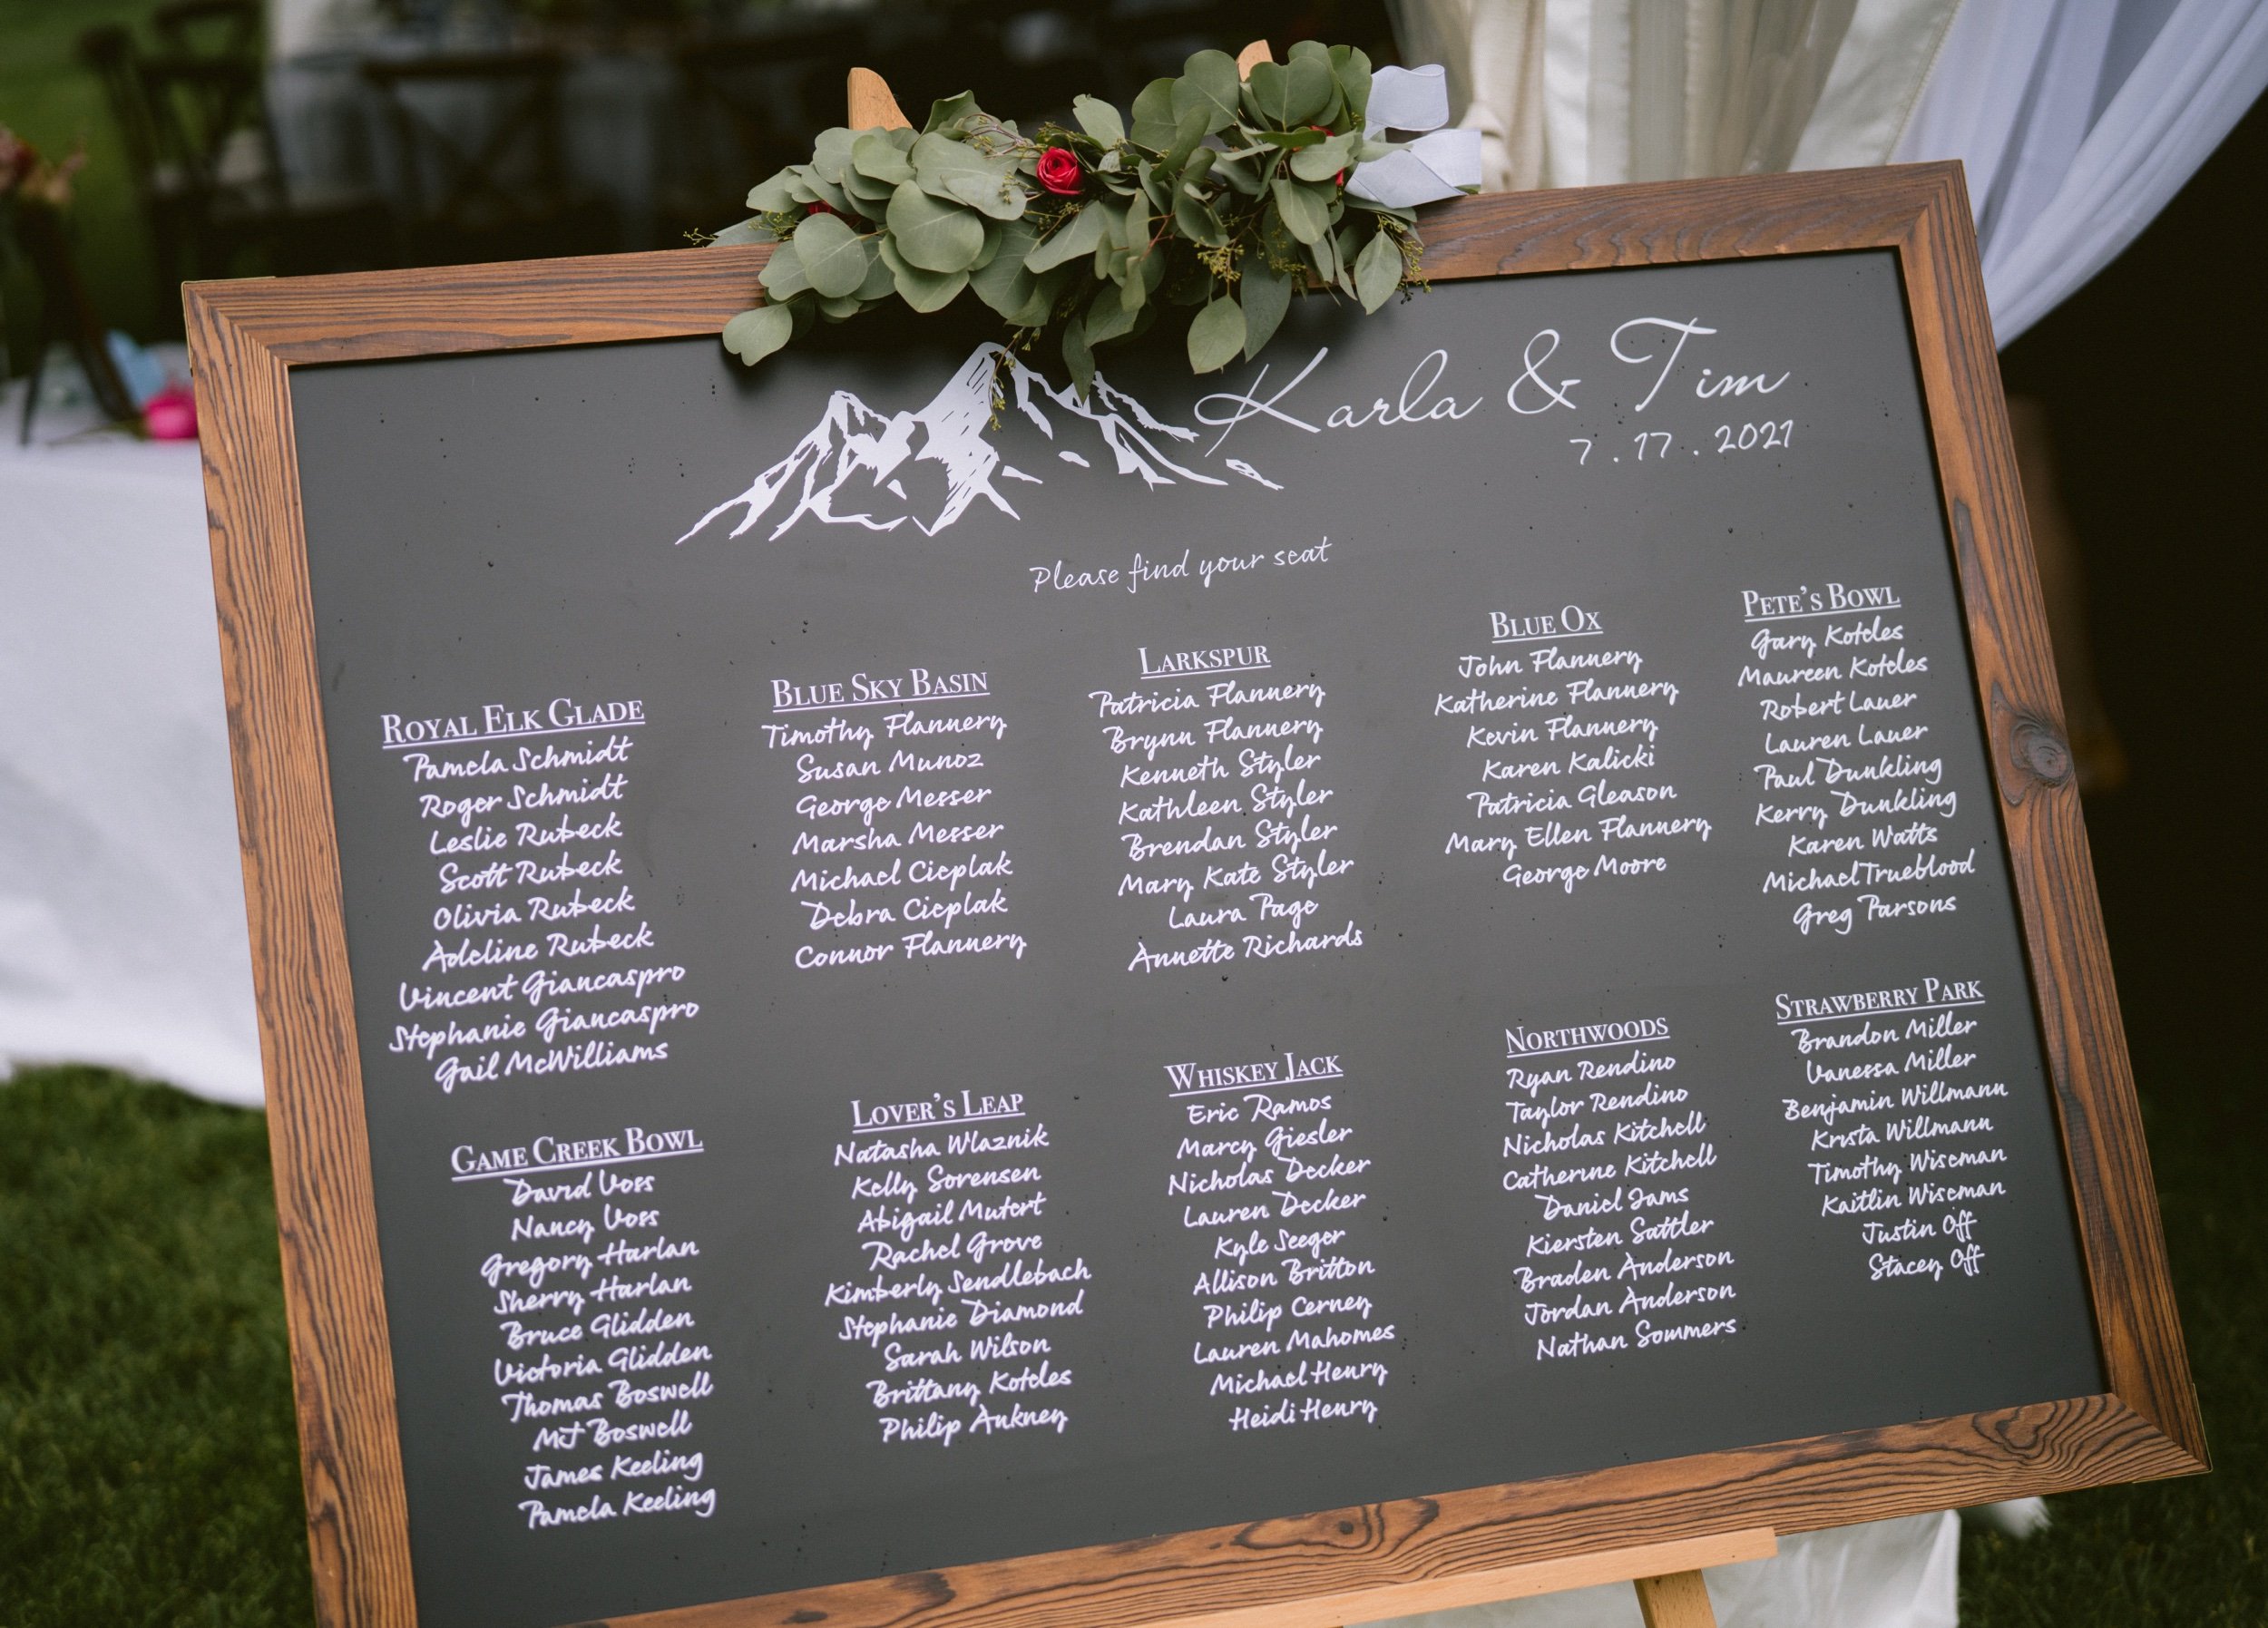 Karla & Tim
7.17.2021
Please find your seat
ROYAL ELK GLADE
Pamela Schmidt
Roger Schmidt
Leslie Rubeck
Scott Rubeck
Olivia Rubeck
Adeline Rubeck
Vincent Giancaspro
Stephanie Giancaspro
Gail McWilliams
BLUE SKY BASIN
Timothy Flannery
Susan Munoz
George Messer
Marsha Messer
Michael Cieplak
Debra Cieplak
Connor Flannery
LARKSPUR
Patricia Flannery
Brynn Flannery
Kenneth Styler
Kathleen Styler
Brendan Styler
Mary Kate Styler
Laura Page
Annette Richards
BLUE OX
John Flannery
Katherine Flannery
Kevin Flannery
Karen Kalicki
Patricia Gleason
Mary Ellen Flannery
George Moore
PETE'S BOWL
Gary Koteles
Maureen Koteles
Robert Lauer
Lauren Lauer
Paul Dunkling
Kerry Dunkling
Karen Watts
Michael Trueblood
Greg Parsons
GAME CREEK BOWL
David Voss
Nancy Voss
Gregory Harlan
Sherry Harlan
Bruce Glidden
Victoria Glidden
Thomas Boswell
MJ Boswell
James Keeling
Pamela Keeling
LOVER'S LEAP
Natasha Wlaznik
Kelly Sorensen
Abigail Mutert
Rachel Grove
Kimberly Sendlebach
Stephanie Diamond
Sarah Wilson
Brittany Koteles
Philip Ankney
WHISKEY JACK
Eric Ramos
Marcy Giesler
Nicholas Decker
Lauren Decker
Kyle Seeger
Allison Britton
Philip Cerney
Lauren Mahomes
Michael Henry
Heidi Henry
NORTHWOODS
Ryan Rendino
Taylor Rendino
Nicholas Kitchell
Catherine Kitchell
Daniel Jams
Kiersten Sattler
Braden Anderson
Jordan Anderson
Nathan Sommers
STRAWBERRY PARK
Brandon Miller
Vanessa Miller
Benjamin Willmann
Krista Willmann
Timothy Wiseman
Kaitlin Wiseman
Justin Off
Stacey Off